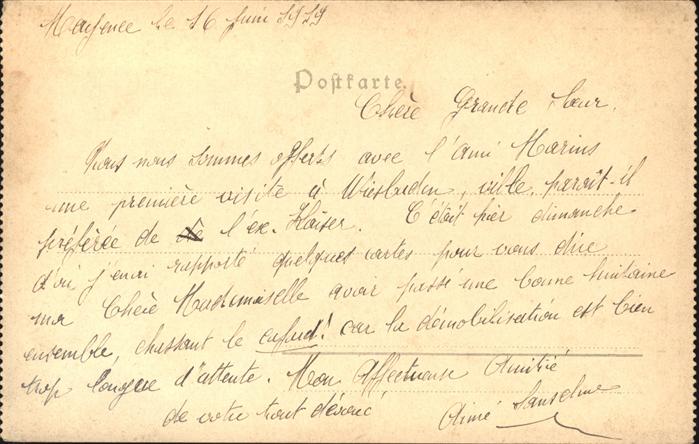 Mayence le 16 Juin 1919
Postkarte.
Chère Grande Sœur.
Nous nous sommes offerts avec l'ami Marius
une première visite à Wiesbaden, ville, paraît-il
préférée de l'ex-Kaiser. C'était hier dimanche
d'où j'en ai rapporté quelques cartes pour vous dire
ma Chère Mademoiselle avoir passé une bonne huitaine
ensemble, chassant le cafard! car la démobilisation est bien
trop longue d'attente. Mon Affectueuse Amitié
de votre tout dévoué Aimé Sanselme